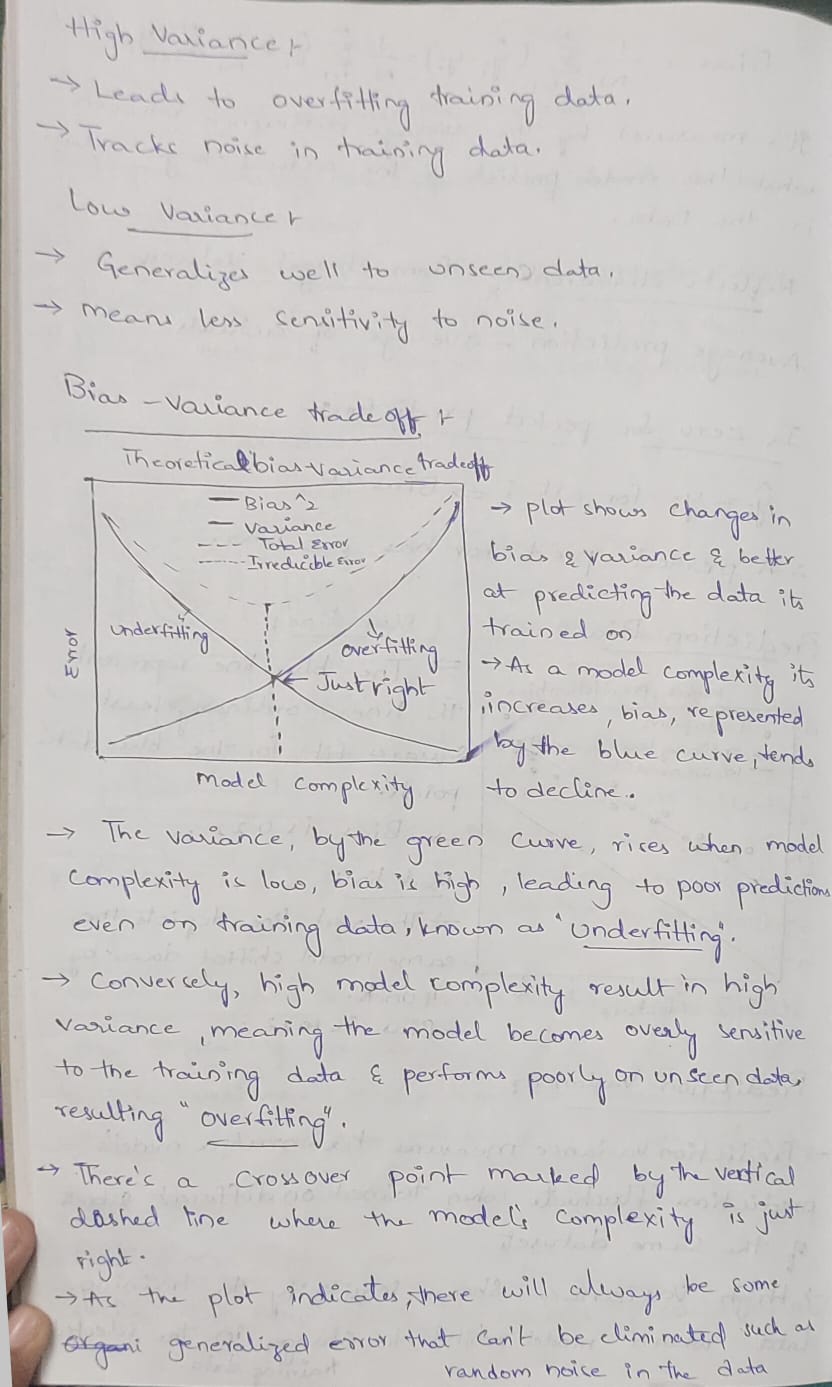 High Variance :-
→ Leads to overfitting training data.
→ Tracks noise in training data.
Low Variance :-
→ Generalizes well to unseen data.
→ means less sensitivity to noise.
Bias - Variance trade off :-
Theoretical bias-variance tradeoff
— Bias^2
— Variance
--- Total Error
------ Irreducible Error
Error
Underfitting
overfitting
Just right
Model Complexity
→ plot shows changes in
bias & variance & better
at predicting the data its
trained on
→ As a model complexity its
increases, bias, represented
by the blue curve, tends
to decline.
→ The variance, by the green curve, rises when model
complexity is low, bias is high, leading to poor predictions
even on training data, known as "Underfitting".
→ Conversely, high model complexity result in high
variance, meaning the model becomes overly sensitive
to the training data & performs poorly on unseen data,
resulting "overfitting".
→ There's a crossover point marked by the vertical
dashed line where the model's complexity is just
right.
→ As the plot indicates, there will always be some
generalized error that can't be eliminated such as
random noise in the data